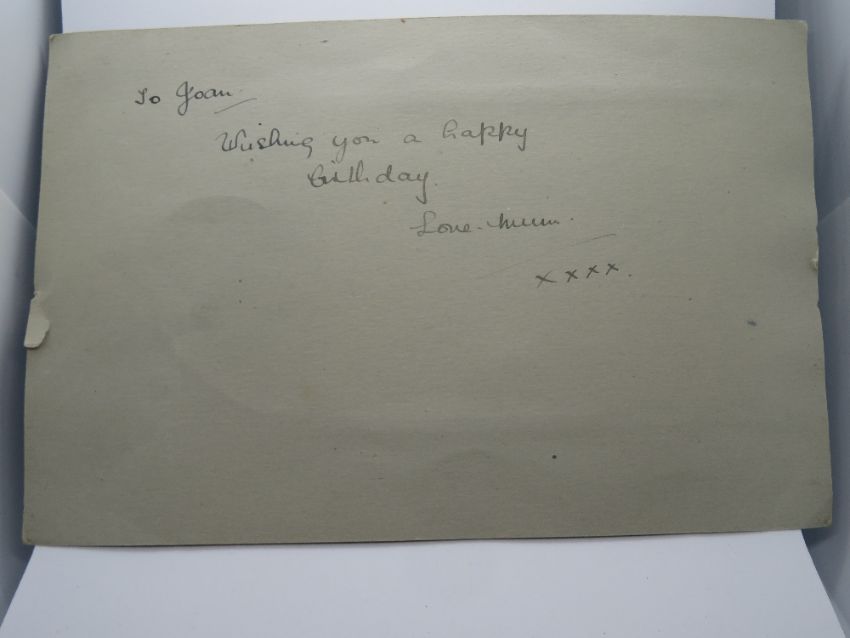 To Joan.
Wishing you a happy
birthday.
Love. Mum.
xxxx.